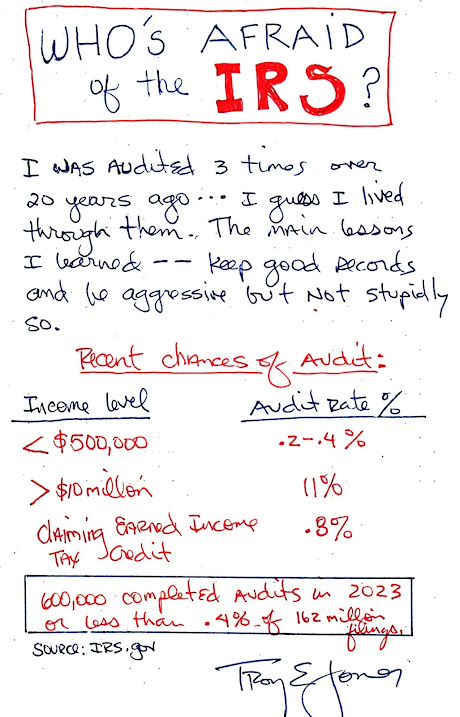 WHO'S AFRAID
of the IRS?
I WAS AUdited 3 times over
20 years ago... I guess I lived
through them. The main lessons
I learned -- keep good records
and be aggressive but Not stupidly
so.
Recent chances of Audit:
Income level Audit Rate %
< $500,000 .2-.4%
> $10 million 11%
Claiming Earned Income .8%
TAX Credit
600,000 completed Audits in 2023
or less than .4% of 162 million
filings.
Source: IRS.gov
Troy E Jones